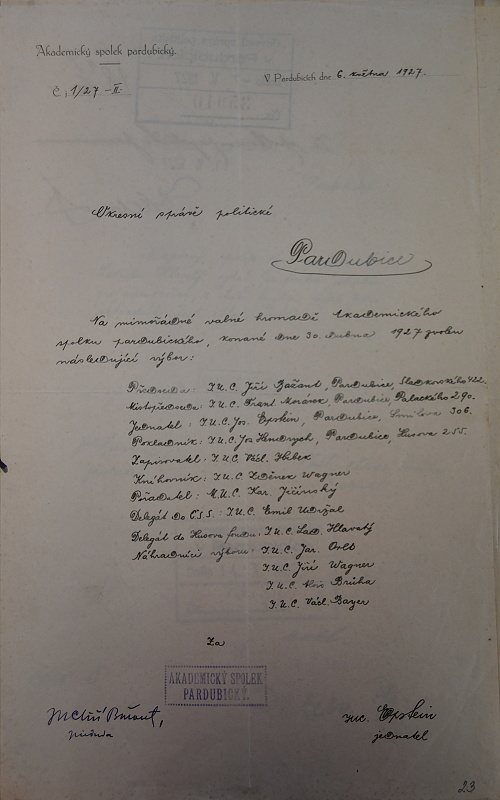 Akademický spolek pardubický.
V Pardubicích dne 6. května 1927.
Č. 1/27 - II.
Okresní správě politické
Pardubice
Na mimořádné valné hromadě Akademického
spolku pardubického, konané dne 30. dubna 1927 zvolen
následující výbor:
Předseda: I.U.C. Jiří Bažant, Pardubice, Sladkovského
Místopředseda: I.U.C. Frant. Morávek, Pardubice, Palackého 290.
Jednatel: I.U.C. Jos. Epstein, Pardubice, Smilova 306.
Pokladník: I.U.C. Jos. Hendrych, Pardubice, Husova 255.
Zapisovatel: I.U.C. Václ. Hübek
Knihovník: I.U.C. Zdeněk Wagner
Pořadatel: M.U.C. Kar. Jičínský
Delegát do Č.S.S.: I.U.C. Emil Udržal
Delegát do Husova fondu: I.U.C. Lad. Hlavatý
Náhradníci výboru: I.U.C. Jar. Orlt
I.U.C. Jiří Wagner
I.U.C. Alois Brůha
I.U.C. Václ. Bayer
Za
AKADEMICKÝ SPOLEK
PARDUBICKÝ.
JUC. Epstein
předseda
jednatel
23